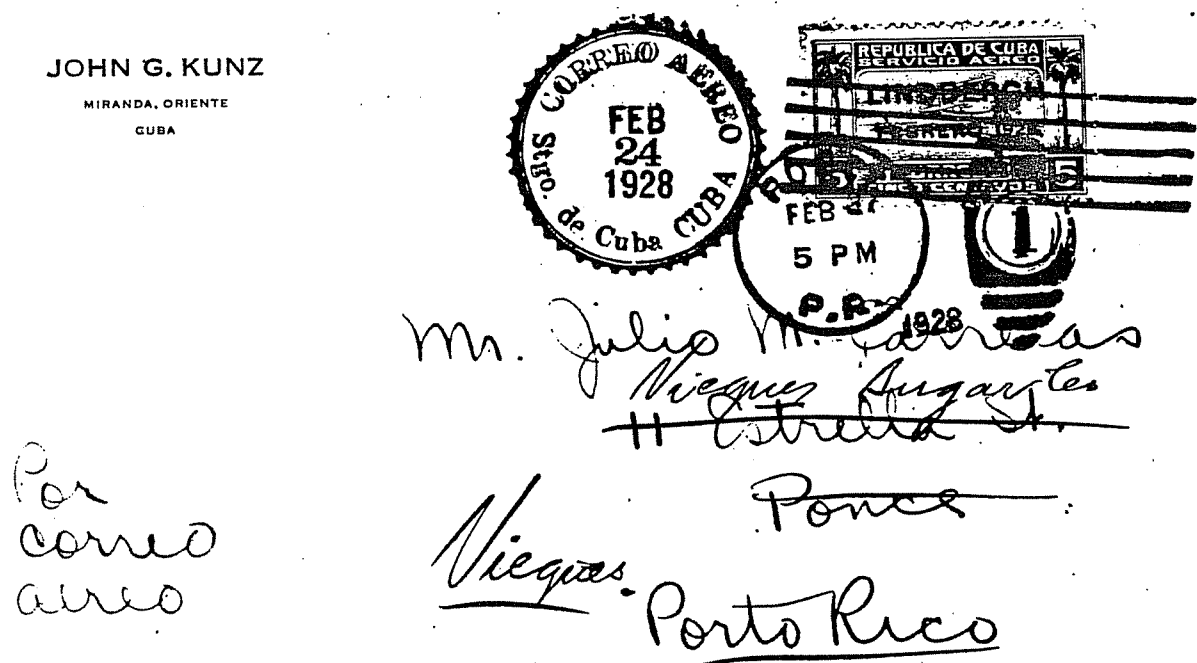 JOHN G. KUNZ
MIRANDA, ORIENTE
CUBA
CORREO AEREO
FEB
24
1928
Stgo. de Cuba CUBA
REPUBLICA DE CUBA
SERVICIO AEREO
LINDBERGH
FEBRERO 1928
5 CINCO CENTAVOS 5
FEB
5 PM
P.R.
1928
1
Mr. Julio M. Carreras
Vieques Sugar Co
11 Estrella St.
Ponce
Por
correo
aereo
Vieques.
Porto Rico